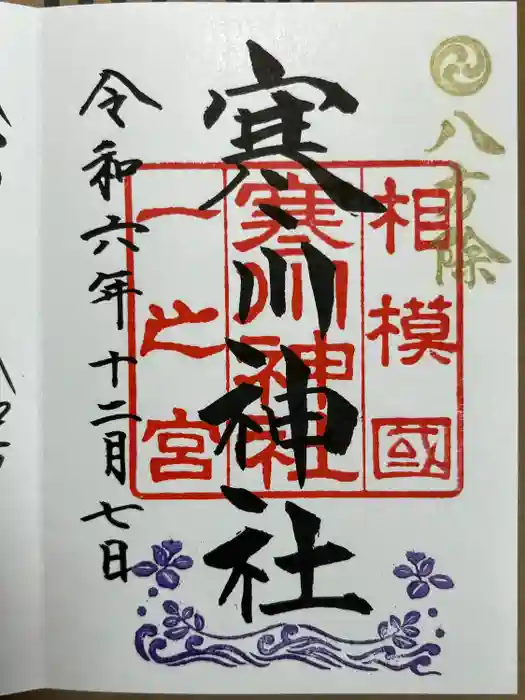 八方除
相模國
寒川神社
一之宮
寒川神社
令和六年十二月七日